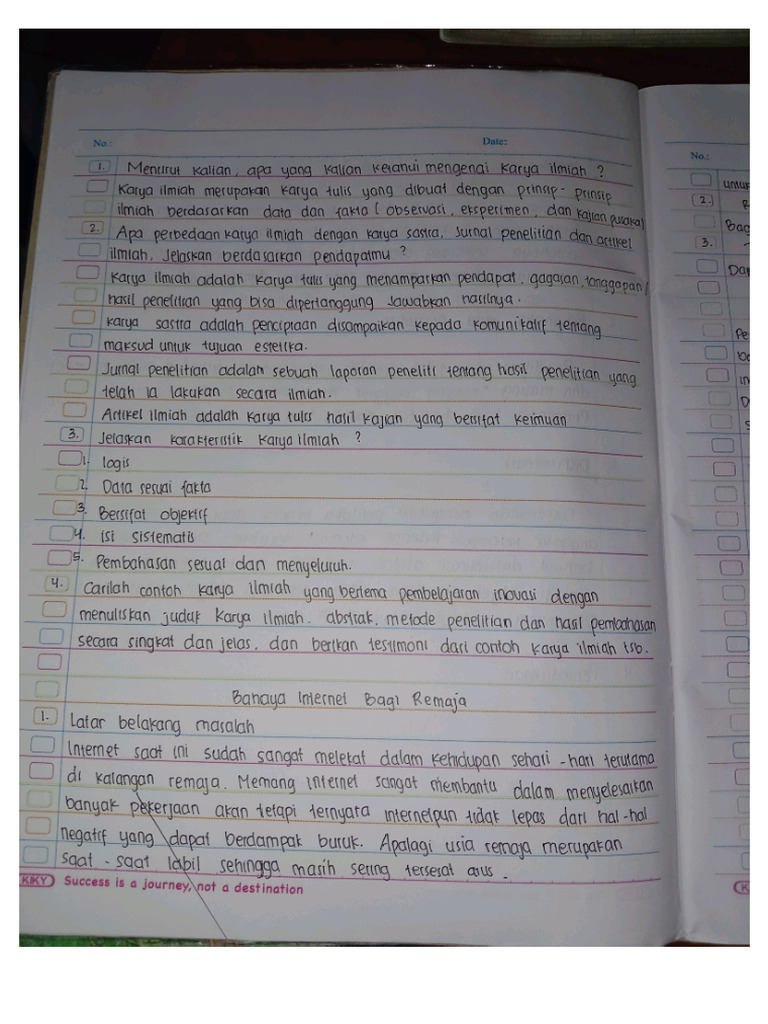 No.: Date:
1. Menurut kalian, apa yang kalian ketahui mengenai karya ilmiah ?
Karya ilmiah merupakan karya tulis yang dibuat dengan prinsip - prinsip
ilmiah berdasarkan data dan fakta ( observasi, eksperimen, dan kajian pusaka)
2. Apa perbedaan karya ilmiah dengan karya sastra, Jurnal penelitian dan artikel
ilmiah, Jelaskan berdasarkan pendapatmu ?
Karya ilmiah adalah karya tulis yang menamparkan pendapat, gagasan, tanggapan /
hasil penelitian yang bisa dipertanggung Jawabkan hasilnya.
karya sastra adalah penciptaan disampaikan kepada komunikatif tentang
maksud untuk tujuan estetika.
Jurnal penelitian adalah sebuah laporan peneliti tentang hasil penelitian yang
telah ia lakukan secara ilmiah.
Artikel ilmiah adalah karya tulis hasil kajian yang bersifat keimuan
3. Jelaskan karakteristik karya ilmiah ?
1. logis
2. Data sesuai fakta
3. Bersifat objektif
4. isi sistematis
5. Pembahasan sesuai dan menyeluruh.
4. Carilah contoh karya ilmiah yang bertema pembelajaran inovasi dengan
menuliskan judul karya ilmiah, abstrak, metode penelitian dan hasil pembahasan
secara singkat dan jelas, dan berikan testimoni dari contoh karya ilmiah tsb.
Bahaya Internet Bagi Remaja
1. Latar belakang masalah
Internet saat ini sudah sangat melekat dalam kehidupan sehari - hari terutama
di kalangan remaja. Memang internet sangat membantu dalam menyelesaikan
banyak pekerjaan akan tetapi ternyata internetpun tidak lepas dari hal-hal
negatif yang dapat berdampak buruk. Apalagi usia remaja merupakan
saat - saat labil sehingga masih sering tersesat arus.
KIKY Success is a journey, not a destination
No.:
untuk
2.
Bag
3.
Dar
Pe
in
D
K